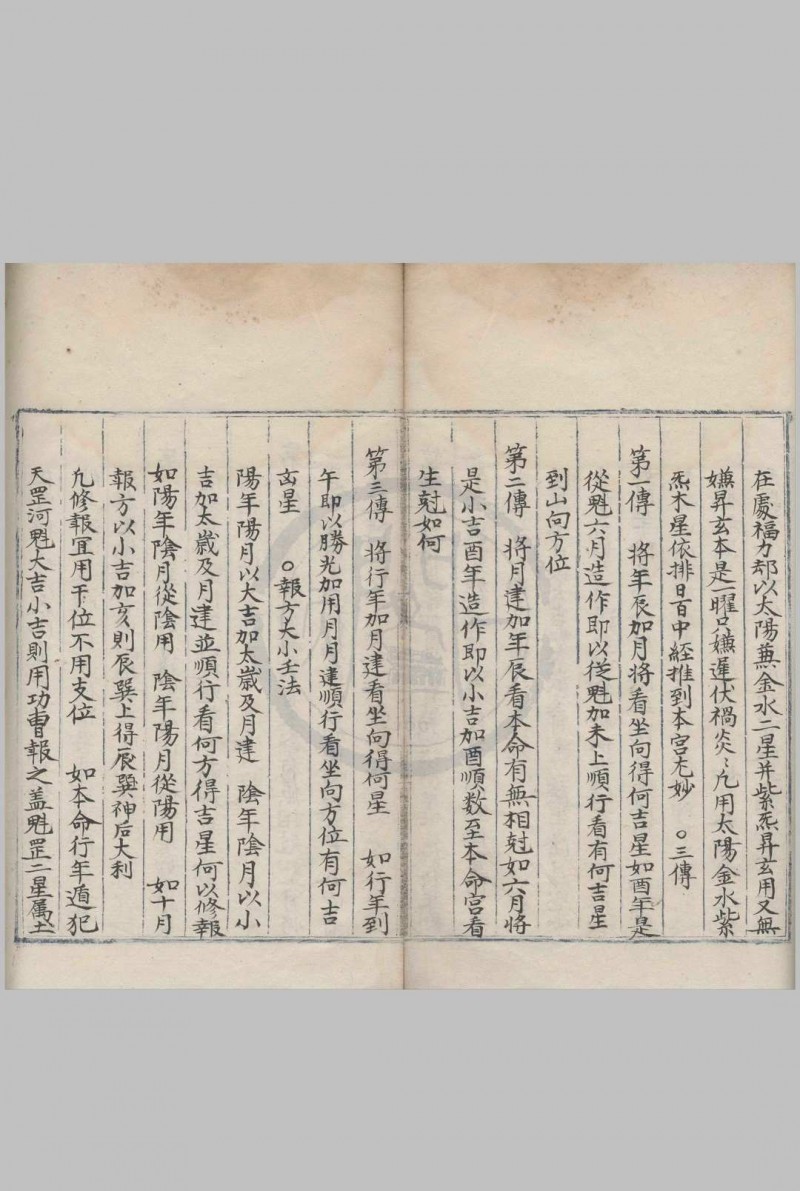 在處福力却以太陽兼金水二星并紫炁昇玄用又無
嫌昇玄本是一曜只嫌遲伏禍炎〻凢用太陽金水紫
炁木星依排日百中經推到本宮尤妙　○三傳
第一傳　將年辰加月將看坐向得何吉星如酉年是
從魁六月造作即以從魁加未上順行看有何吉星
到山向方位
第二傳　將月建加年辰看本命有無相尅如六月將
是小吉酉年造作即以小吉加酉順数至本命宮看
生尅如何
第三傳　將行年加月建看坐向得何星　如行年到
午即以勝光加用月月建順行看坐向方位有何吉
㐫星　○報方大小壬法
陽年陽月以大吉加太歲及月建　陰年陰月以小
吉加太歲及月建並順行看何方得吉星何以修報
如陽年陰月從陰用　陰年陽月從陽用　如十月
報方以小吉加亥則辰巽上得辰巽神后大利
凢修報宜用干位不用支位　如本命行年遁犯
天罡河魁大吉小吉則用功曹報之盖魁罡二星属土